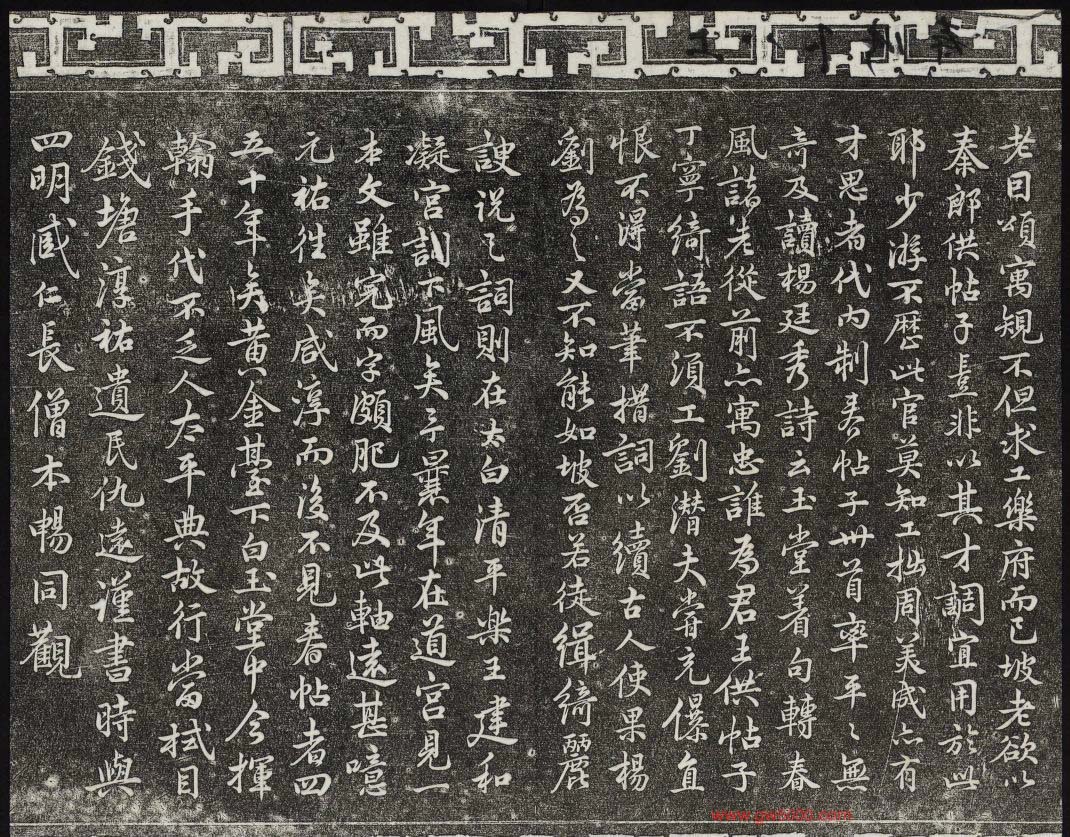 老因頌寓規不但求工樂府而已坡老欲以
秦郎供帖子豈非以其才調宜用於此
耶少游不歷此官莫知工拙周美成亦有
才思者代內制春帖子卅首率平〻無
奇及讀楊廷秀詩云玉堂着句轉春
風諸老從前亦寓忠誰為君王供帖子
丁寧綺語不須工劉潛夫嘗充儤直
恨不得當筆措詞以續古人使果楊
劉為之又不知能如坡否若徒緝綺麗
諛説之詞則在太白清平樂王建和
凝宮詞下風矣予曩年在道宮見一
本文雖完而字頗肥不及此軸遠甚噫
元祐往矣咸淳而後不見春帖者四
五十年矣黄金臺下白玉堂中今揮
翰手代不乏人太平典故行當拭目
錢塘淳祐遺民仇遠謹書時與
四明戚仁長僧本暢同觀
www.